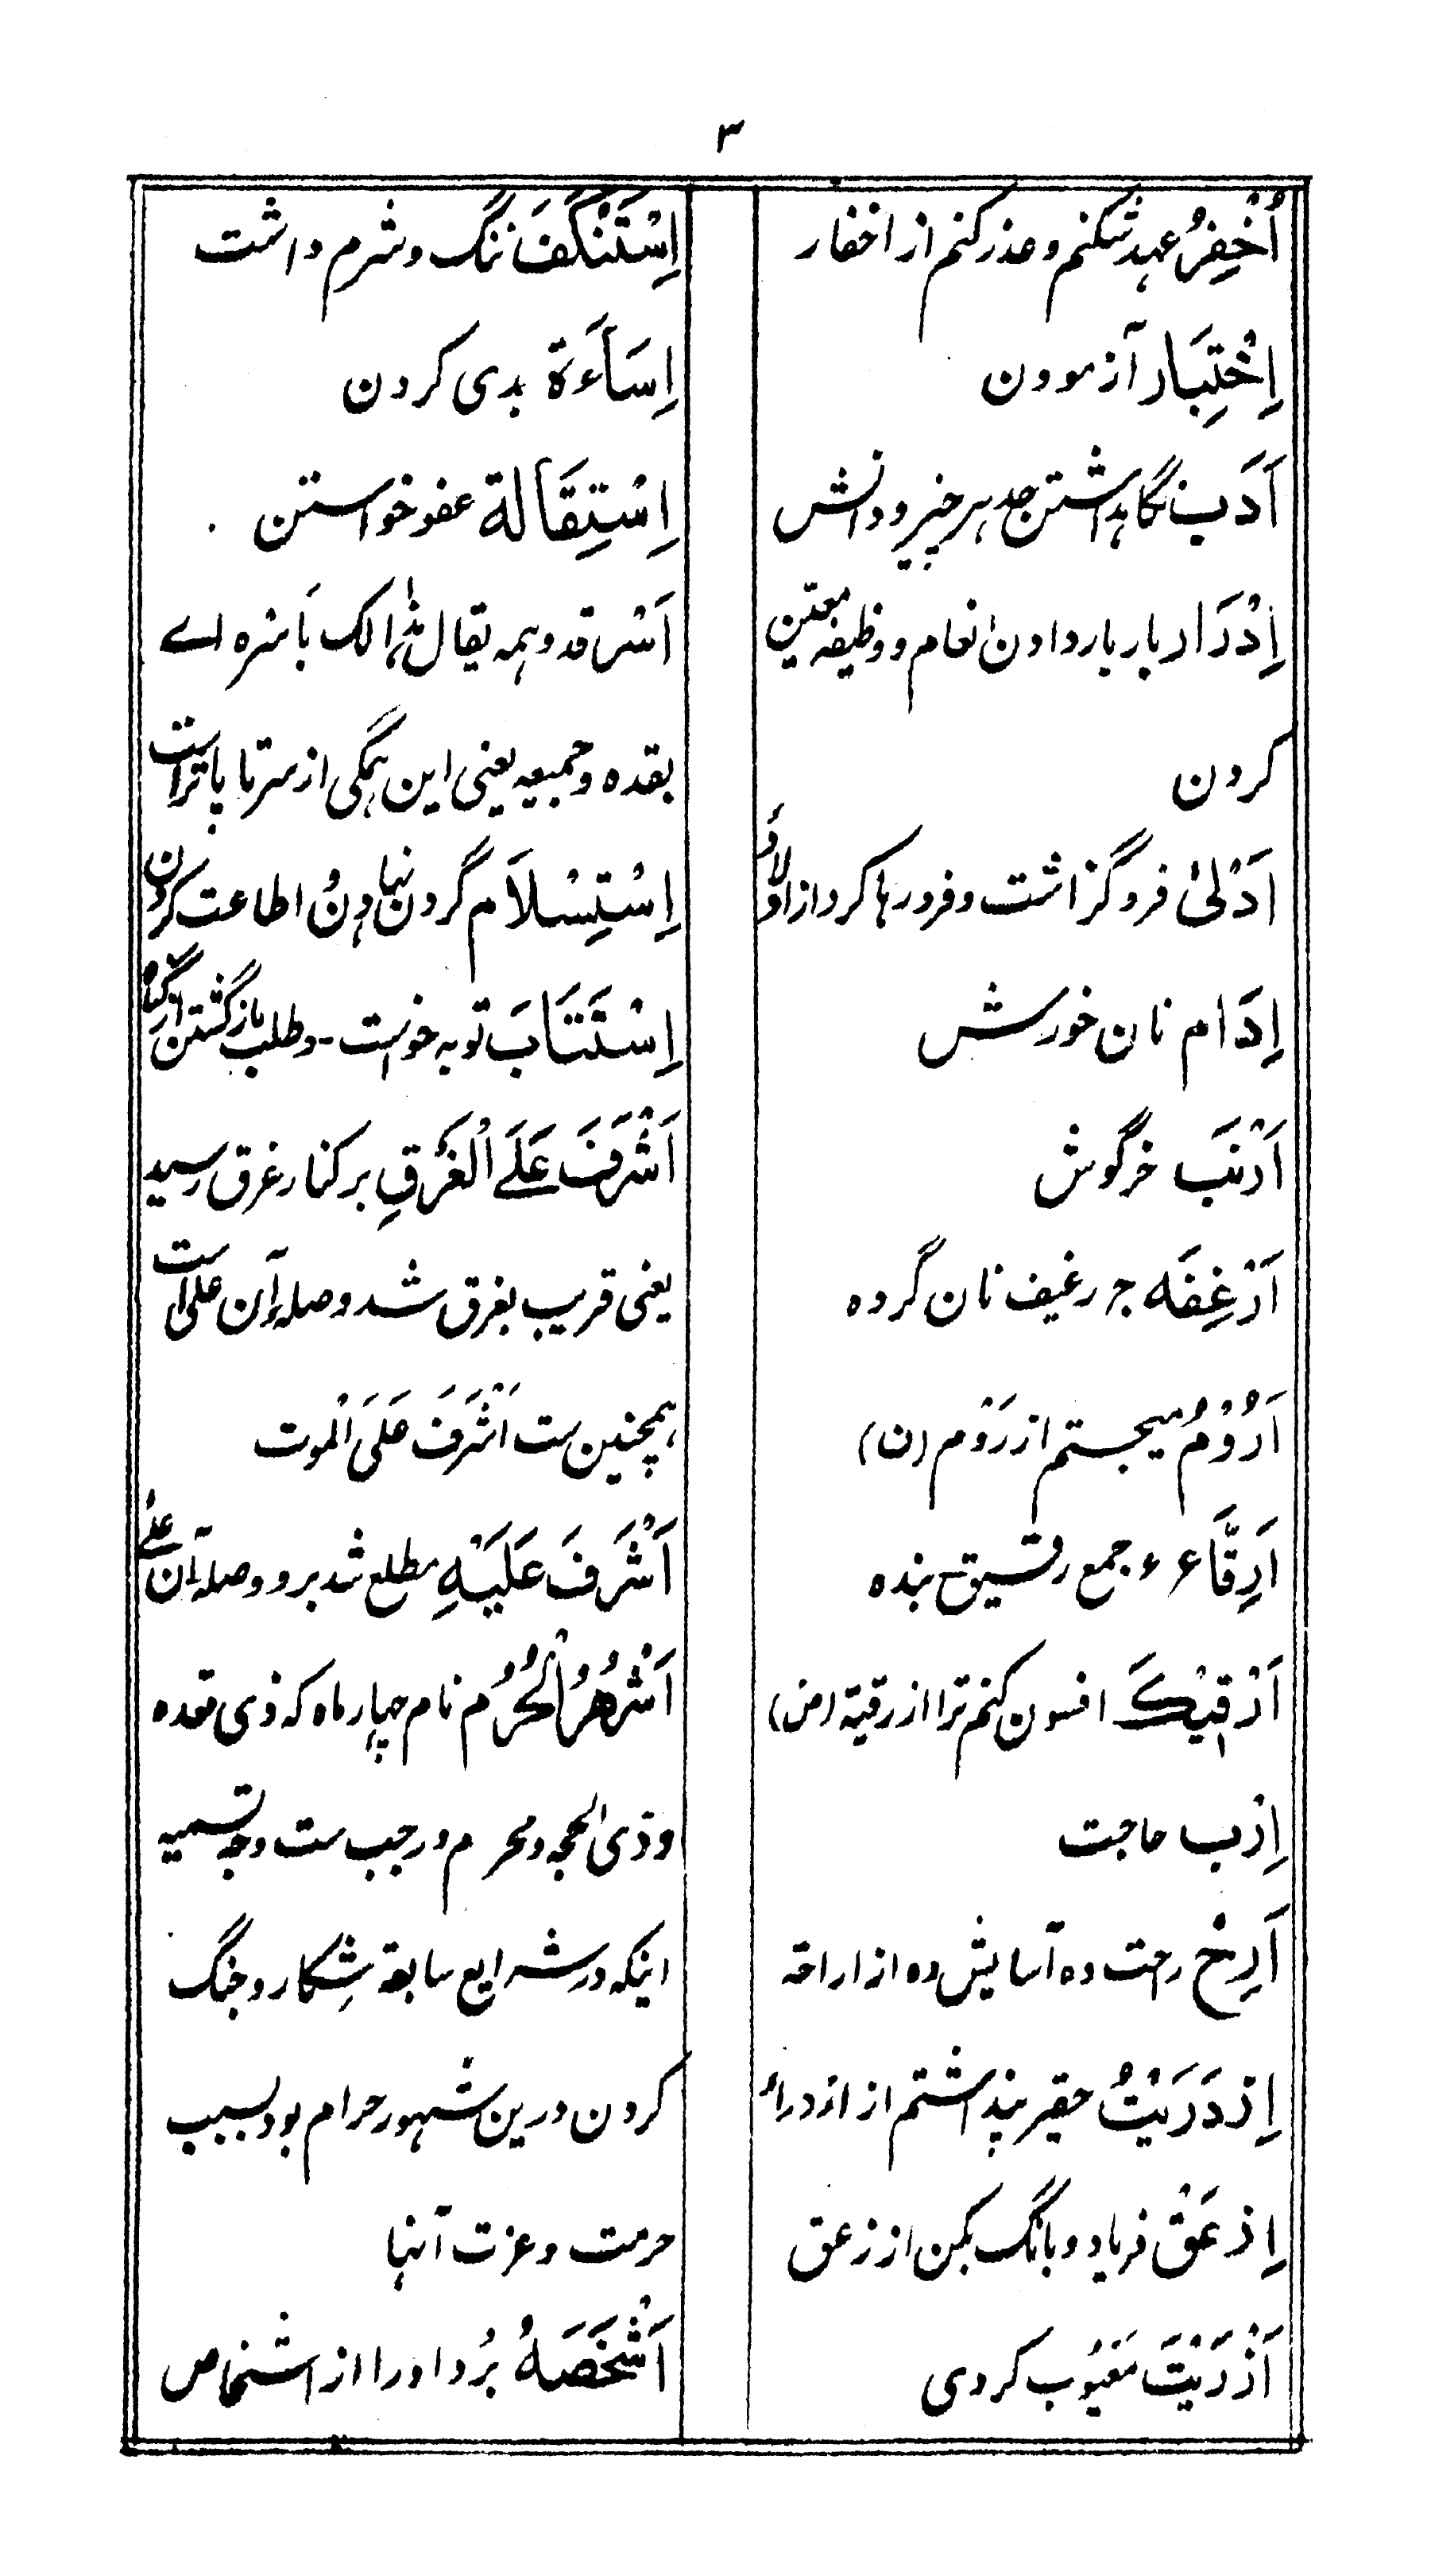 ۳
اُخْفِرُ عہد شکنم و عذر کنم از اخفار
اِخْتِبَار آزمودن
اَدَب نگاہداشتن حد ہر چیز و دانش
اِدْرَار بار بار دادن انعام و وظیفہ معین
کردن
اَدْلیٰ فروگزاشت و فرو رہا کرد از ادلاءٌ
اِدَام نان خورش
اَرْنَب خرگوش
اَرْغِفَه ج رغیف نان گرده
اَرُوْمُ میجستم از رَوْم (ن)
اَرِقَّاء ء جمع رقیق بنده
اَرْقِیْکَ افسون کنم ترا از رقیة (ض)
اِرْب حاجت
اَرِحْ رحت ده آسایش ده از اراحة
اِزْدَرَیْتُ حقیر پنداشتم از ازدراء
اِزْعَقْ فریاد و بانگ بکن از زعق
اَزْرَیْتَ مَعْیُوب کردی
اِسْتَنْکَفَ ننگ و شرم داشت
اِسَآءَة بدی کردن
اِسْتِقَالة عفو خواستن
اَسْر قد و ہمہ یقال ہٰذا لک بَاسْرہ اے
بقدہ و جمیعہ یعنی این ہمگی از سر تا پا تراست
اِسْتِسْلَام گردن نہادن و اطاعت کردن
اِسْتَتَابَ توبہ خواست - و طلب بازگشتن از گناہ
اَشْرَفَ عَلَے الْغَرَقِ بر کنار غرق رسید
یعنی قریب بغرق شد و صلہ آن علی است
ہمچنین ست اَشْرَفَ عَلَی الْموت
اَشْرَفَ عَلَیْهِ مطلع شد برو و صلہ آن علے
اَشْهُرُ الْحُرُم نام چہار ماہ کہ ذی قعدہ
و ذی الحجہ و محرم و رجب ست وجہ تسمیہ
اینکہ در شرایع سابقة شکار و جنگ
کردن درین شہور حرام بود بسبب
حرمت و عزت آنہا
اَشْخَصَهُ بُرد اورا از اشخاص